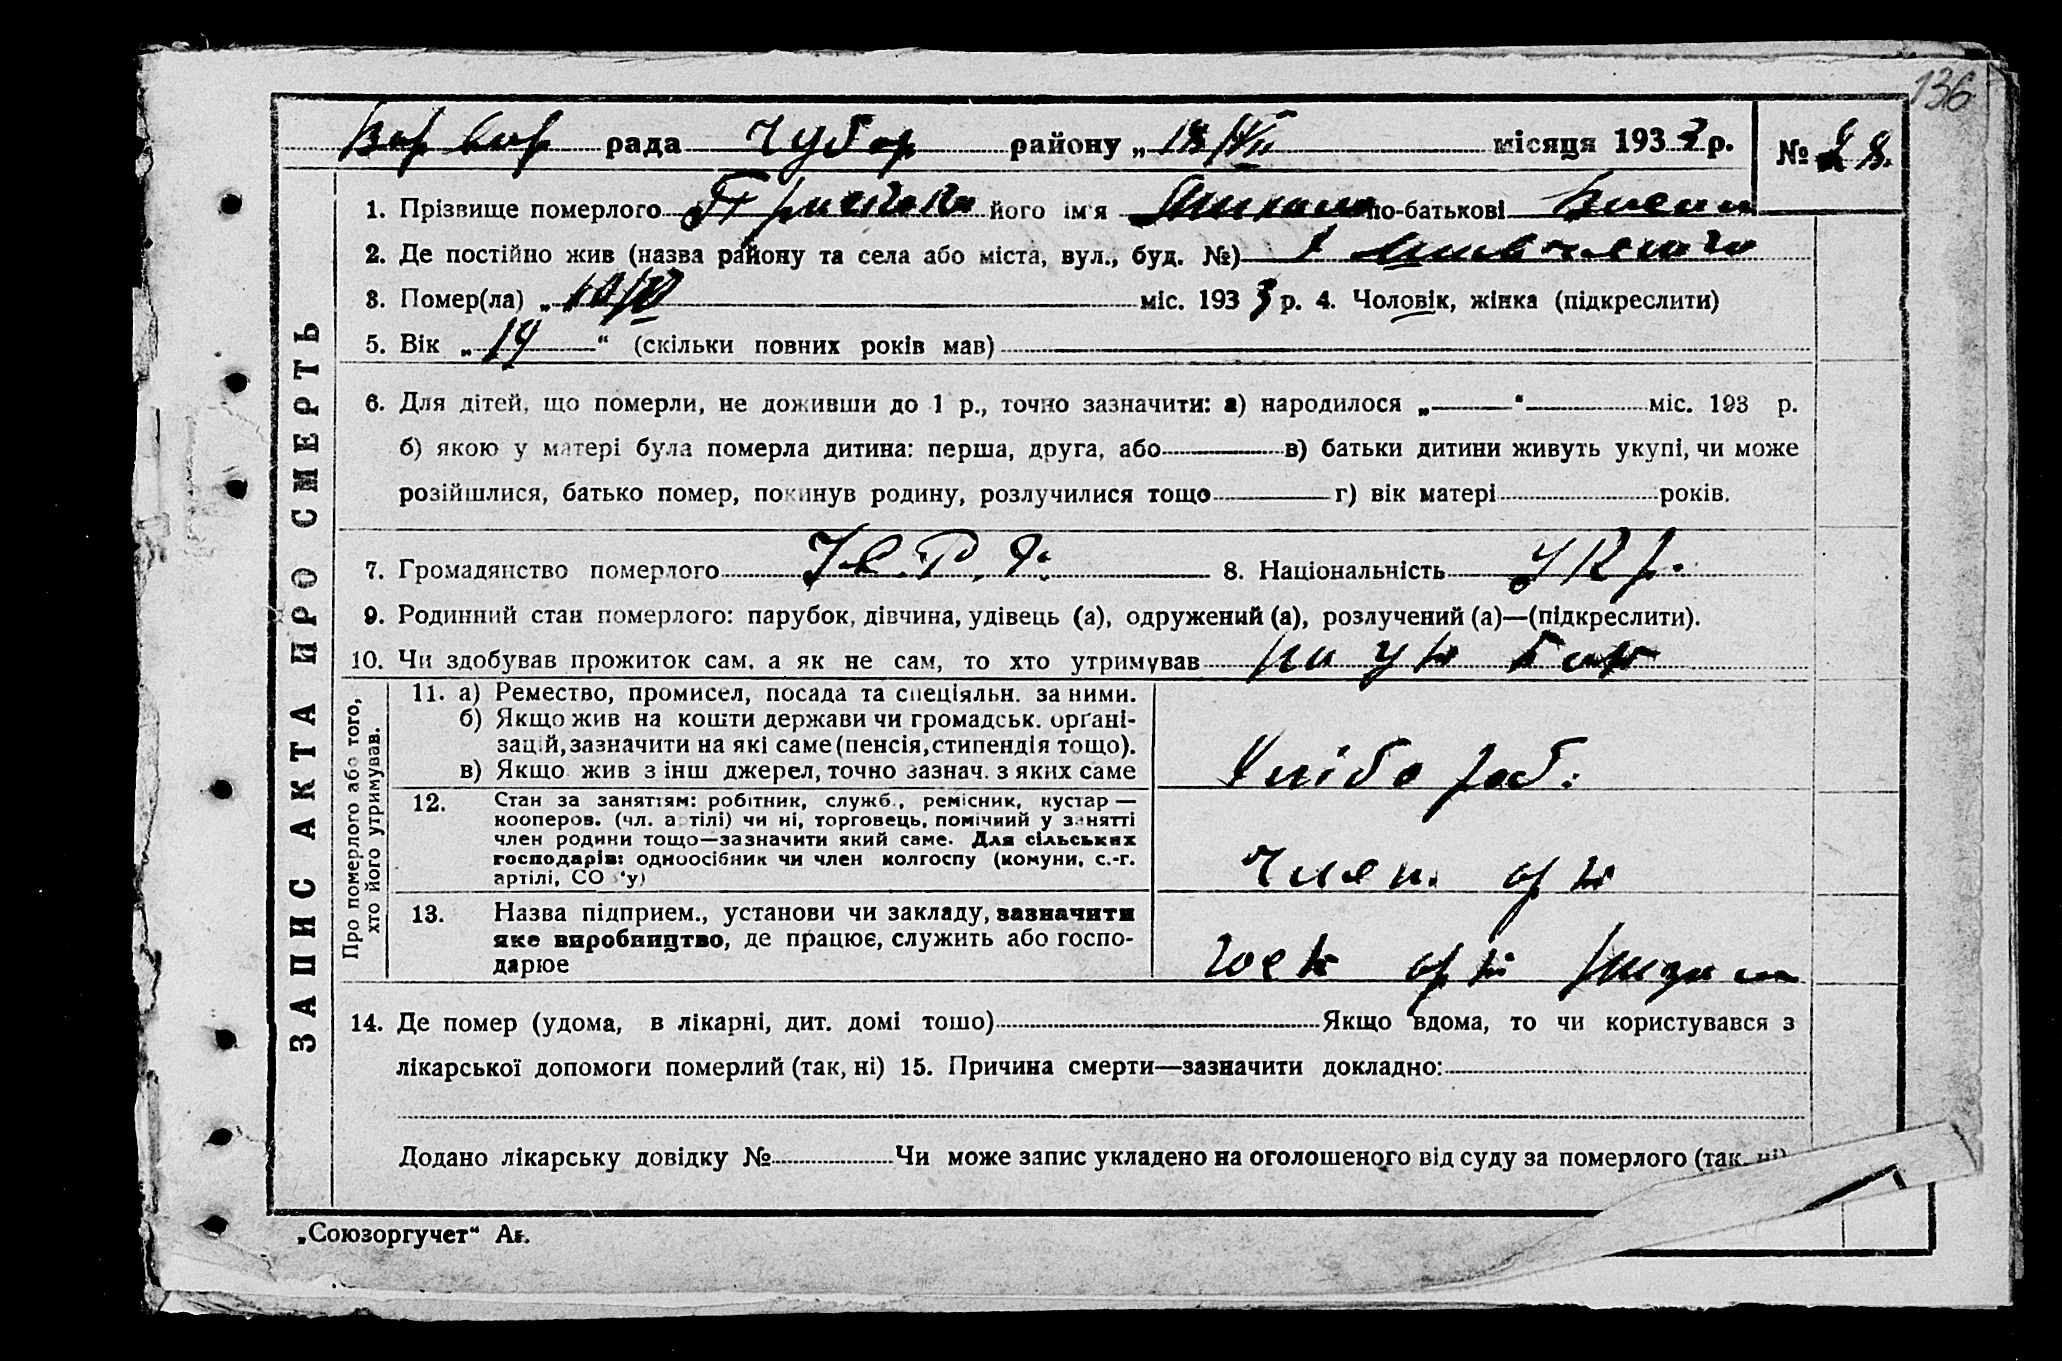 136
рада Чубар району „ 18/VII місяця 1933 р. № 28.
ЗАПИС АКТА ПРО СМЕРТЬ
1. Прізвище померлого його ім'я Микола по-батькові
2. Де постійно жив (назва району та села або міста, вул., буд. №)
3. Помер(ла) „ міс. 193 3 р. 4. Чоловік, жінка (підкреслити)
5. Вік „ 14 “ (скільки повних років мав)
6. Для дітей, що померли, не доживши до 1 р., точно зазначити: а) народилося „ “ міс. 193 р.
б) якою у матері була померла дитина: перша, друга, або в) батьки дитини живуть укупі, чи може
розійшлися, батько помер, покинув родину, розлучилися тощо г) вік матері років.
7. Громадянство померлого 8. Національність Укр.
9. Родинний стан померлого: парубок, дівчина, удівець (а), одружений (а), розлучений (а)—(підкреслити).
10. Чи здобував прожиток сам, а як не сам, то хто утримував
Про померлого або того,
хто його утримував.
11. а) Ремество, промисел, посада та спеціяльн. за ними.
б) Якщо жив на кошти держави чи громадськ. органі-
зацій, зазначити на які саме (пенсія, стипендія тощо).
в) Якщо жив з інш джерел, точно зазнач. з яких саме
Хлібороб:
12. Стан за заняттям: робітник, служб., ремісник, кустар—
кооперов. (чл. артілі) чи ні, торговець, помічний у занятті
член родини тощо—зазначити який саме. Для сільських
господарів: одноосібник чи член колгоспу (комуни, с.-г.
артілі, СО 'у)
Член.
13. Назва підприєм., установи чи закладу, зазначити
яке виробництво, де працює, служить або госпо-
дарює
14. Де помер (удома, в лікарні, дит. домі тошо) Якщо вдома, то чи користувався з
лікарської допомоги померлий (так, ні) 15. Причина смерти—зазначити докладно:
Додано лікарську довідку № Чи може запис укладено на оголошеного від суду за померлого (так, ні)
„Союзоргучет“